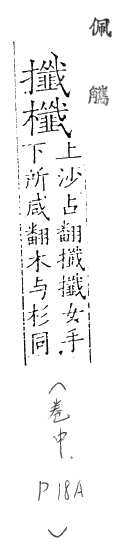 佩觿
攕櫼
上沙占翻攕攕女手
下所咸翻木与杉同
(卷中.
P 18A
)